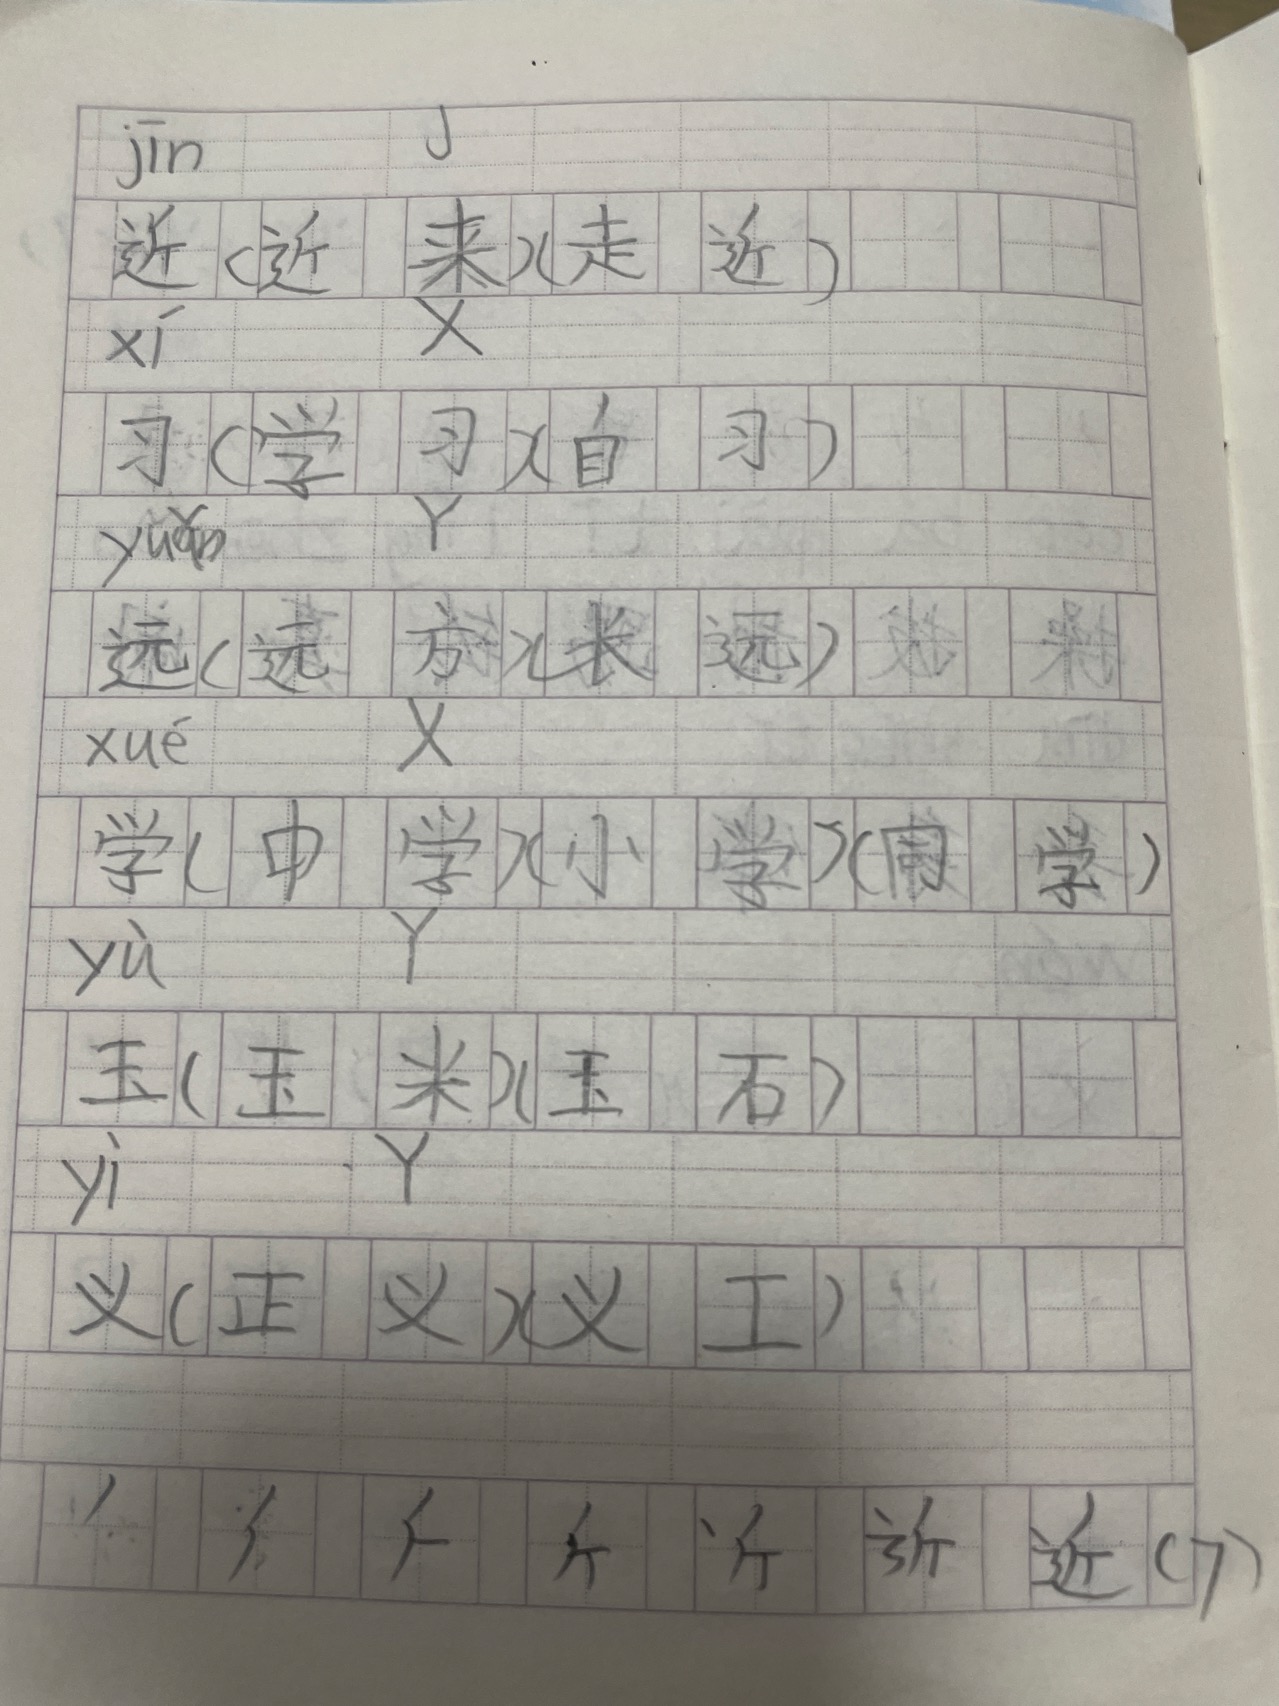 jīn J
近(近来)(走近)
xí X
习(学习)(自习)
yuǎn Y
远(远方)(长远)
xué X
学(中学)(小学)(同学)
yù Y
玉(玉米)(玉石)
yì Y
义(正义)(义工)
近(7)